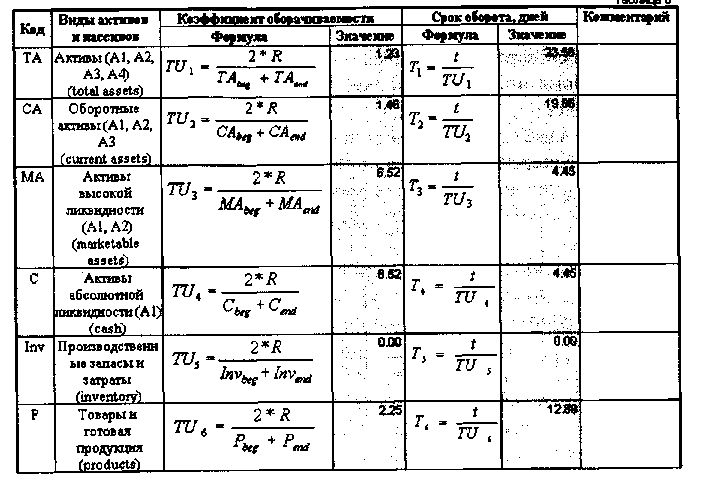 Таблица 6
Код Виды активов и пассивов Коэффициент оборачиваемости Срок оборота, дней Комментарий
Формула Значение Формула Значение
TA Активы (A1, A2,
A3, A4)
(total assets)
TU 1 = 2 * R / (TA beg + TA end) 1.23 T1 = t / TU 1
CA Оборотные
активы (A1, A2,
A3
(current assets)
TU 2 = 2 * R / (CA beg + CA end) 1.46 T2 = t / TU2
MA Активы
высокой
ликвидности
(A1, A2)
(marketable
assets)
TU 3 = 2 * R / (MA beg + MA end) 6.52 T3 = t / TU3 4.45
C Активы
абсолютной
ликвидности (A1)
(cash)
TU 4 = 2 * R / (C beg + C end) 6.52 T 4 = t / TU 4 4.45
Inv Производственн
ые запасы и
затраты
(inventory)
TU5 = 2 * R / (Inv beg + Inv end) 0.00 T 5 = t / TU 5 0.00
P Товары и
готовая
продукция
(products)
TU 6 = 2 * R / (P beg + P end) 2.25 T 6 = t / TU 6